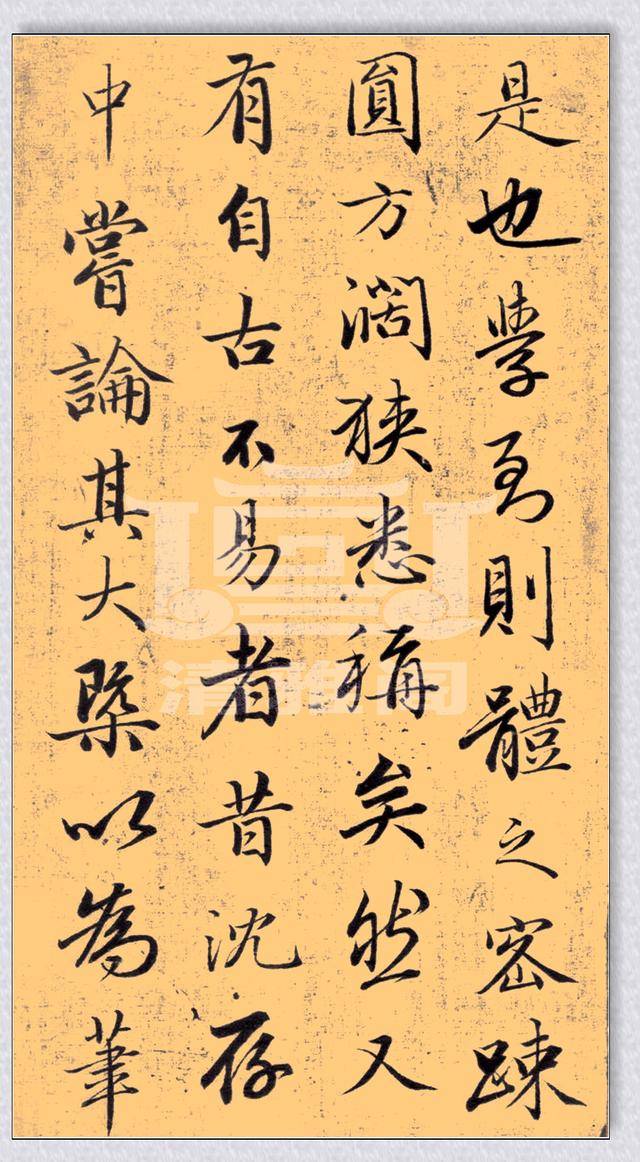 是也學到則體之密踈
圓方濶狹悉稱矣然又
有自古不易者昔沈存
中嘗論其大槩以為筆
清雅阁